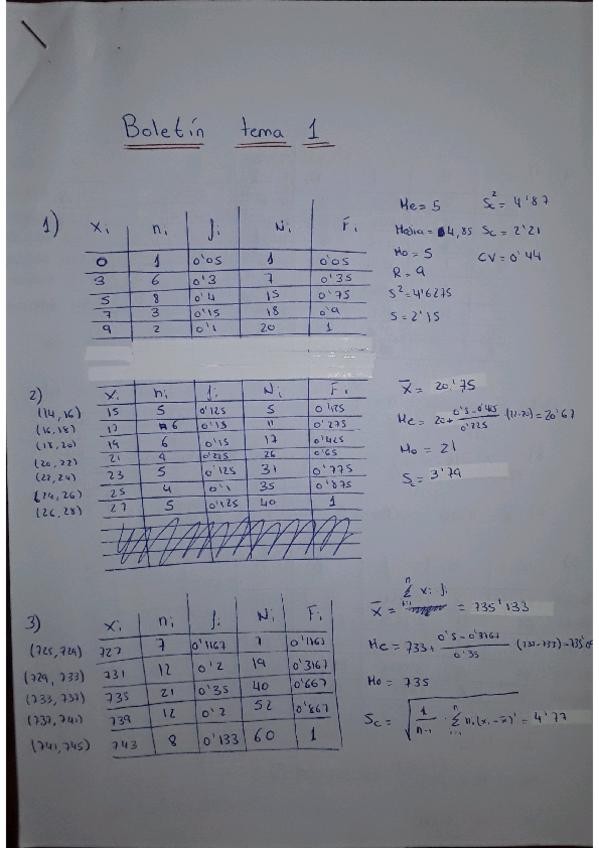 Boletín tema 1
1) Xi ni fi Ni Fi
0 1 0'05 1 0'05
3 6 0'3 7 0'35
5 8 0'4 15 0'75
7 3 0'15 18 0'9
9 2 0'1 20 1
Me = 5 Sc² = 4'87
Media = 4,85 Sc = 2'21
Mo = 5 CV = 0'44
R = 9
S² = 4'6275
S = 2'15
2) Xi ni fi Ni Fi
(14,16) 15 5 0'125 5 0'125
(16,18) 17 6 0'15 11 0'275
(18,20) 19 6 0'15 17 0'425
(20,22) 21 9 0'225 26 0'65
(22,24) 23 5 0'125 31 0'775
(24,26) 25 4 0'1 35 0'875
(26,28) 27 5 0'125 40 1
X̄ = 20'75
Me = 20 + (0'5 - 0'425)/0'225 (22-20) = 20'67
Mo = 21
Sc = 3'79
3) Xi ni fi Ni Fi
(725,729) 727 7 0'1167 7 0'1167
(729,733) 731 12 0'2 19 0'3167
(733,737) 735 21 0'35 40 0'667
(737,741) 739 12 0'2 52 0'867
(741,745) 743 8 0'133 60 1
X̄ = Σ xi fi = 735'133
Me = 733 + (0'5 - 0'3167)/0'35
Mo = 735
Sc = √(1/(n-1) · Σ ni(xi - x̄)²) = 4'77